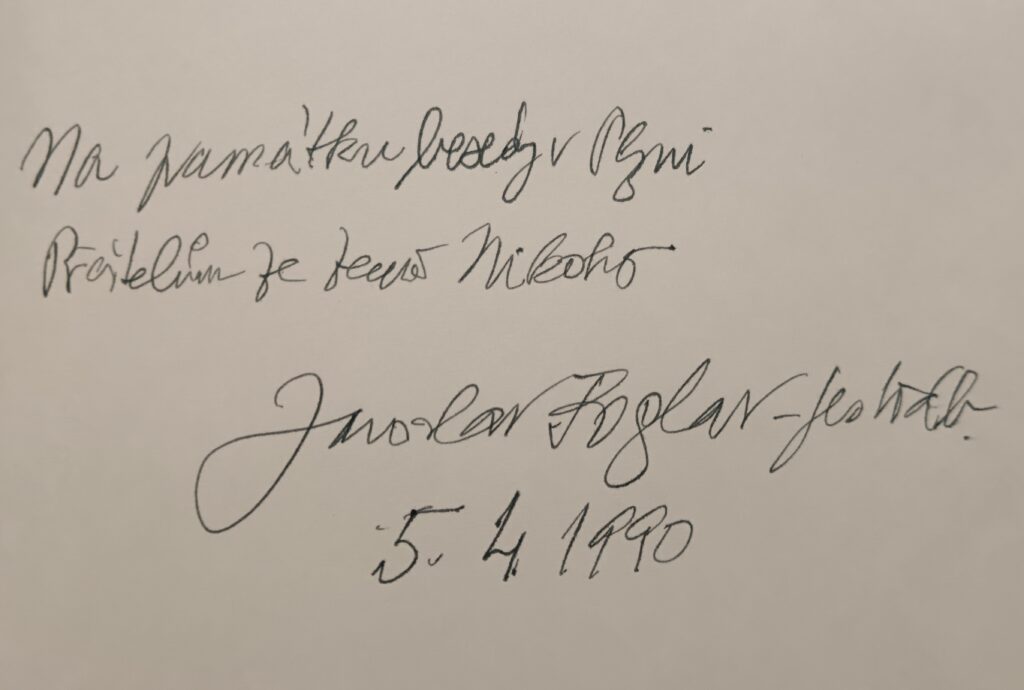 Na památku besedy v Plzni
Přátelům ze Země Nikoho
Jaroslav Foglar - Jestřáb.
5. 4. 1990